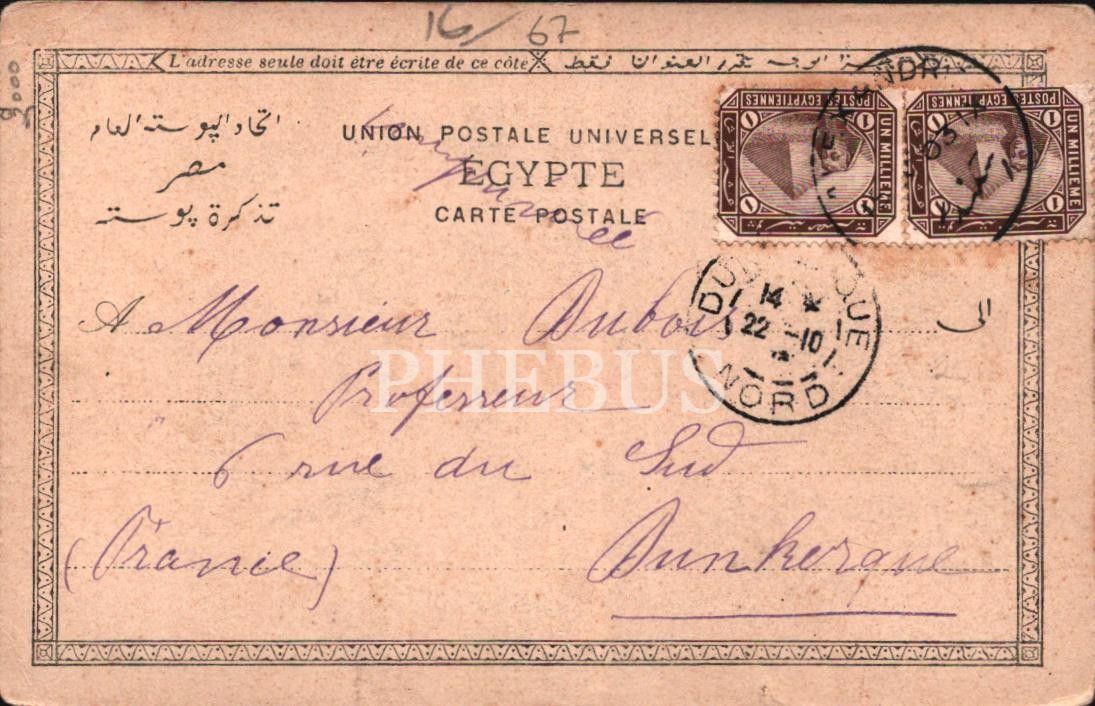 16/ 67
9000
L'adresse seule doit être écrite de ce côté فقط العنوان يحرر
اتحاد البوسته العام
UNION POSTALE UNIVERSELLE
مصر
EGYPTE
تذكرة بوسته
CARTE POSTALE
POSTES EGYPTIENNES
UN MILLIEME
1 1
POSTES EGYPTIENNES
UN MILLIEME
1 1
DUNKERQUE
14
22 -10
NORD
A Monsieur Dubois
الى
PHEBUS
Professeur
6 rue du Sud
(France) Dunkerque